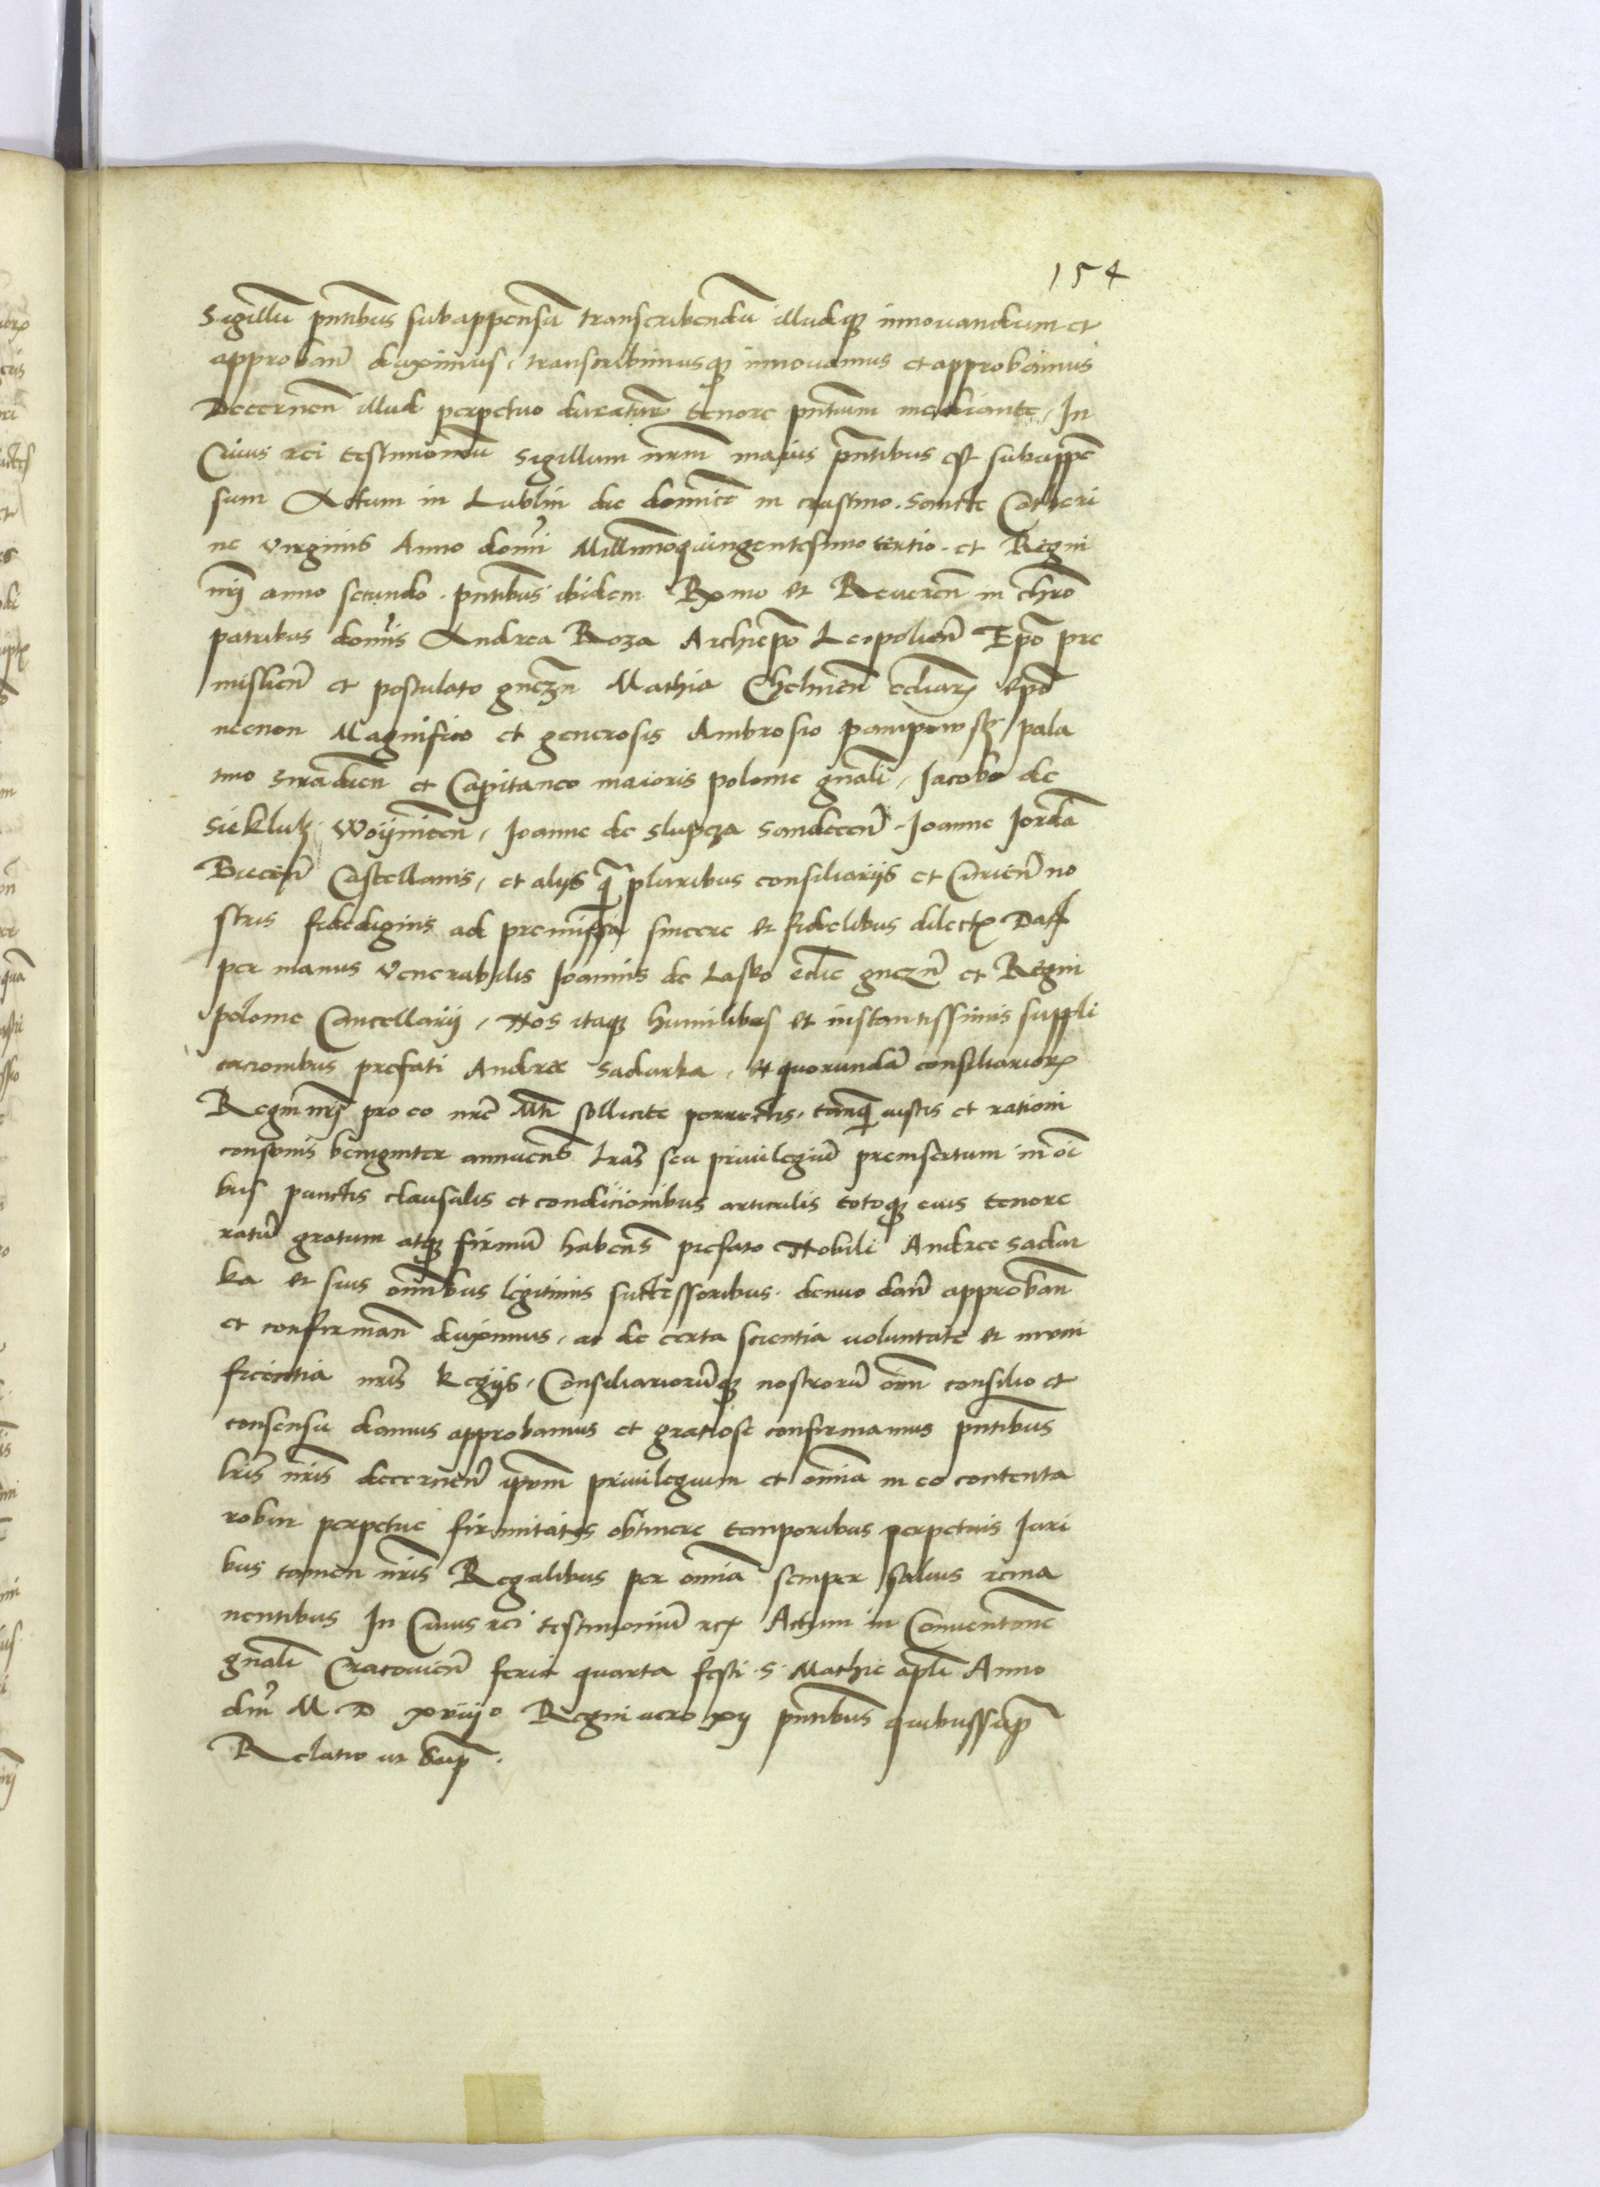 154
Sigillũ pñtibus subappensũ transcribendũ illudq̃ innouandum et
approbañ duximus, transcribimusq̃ innouamus et approbamus
Decerneñ illud perpetuo duratuɍ tenore pñtium mediante, In
Cuius rei testimoniũ Sigillum nrm̃ maius p̃ntibus est subappẽ
sum Actum in Lublin die dominicõ in crastino Sancte Catheri
ne virginis Anno domĩ Millimoquingentesimo tertio et Regni
nrĩ anno secundo pñtibus ibidem Rx̃mo et Reuereñ in chrõ
patribus domĩs Andrea Roza Archiepõ Leopolieñ Epõ pre
mislieñ et postulato gnezñ Mathia Chelmeñ ecĩarꝝ epõ
necnon Magnifico et generosis Ambrosio pampowsky pala
tino Siradieñ et Capitaneo maioris polonie gñali, Jacobo de
Sieklulz Woyniceñ, Joanne de Slupcza Sandeceñ Joanne Jordã
Bieceñ Castellanis, et alijs q̃ pluribus consiliarijs et Curieñ no
stris fidedignis ad premissa sincere et fidelibus dilectꝭ Dat
per manus Venerabilis Joannis de Lasko ecĩe gnezñ et Regni
polonie Cancellarij, Nos itaq̃ humilibus et instantissimis suppli
cacionibus prefati Andree Sadarka, et quorundã consiliariorꝝ
Regni nrĩ pro eo nrẽ Mti sollicite porrectis, tanq̃ iustis et rationi
consonis benigniter annueñ lrãs seu priuilegiũ preinsertum in oĩ
bus punctis clausulis et condicionibus articulis totoq̃ eius tenore
ratũ gratum atq̃ firmũ habeñ prefato Nobili Andree Sadar
ka et suis omñibus legitimis successoribus denuo dañ approbañ
et confirmañ duximus, ac de certa scientia voluntate et muni
ficentia nrĩs Regijs, Consiliariorũq̃ nostrorũ oĩm consilio et
consensu damus approbamus et gratiose confirmamus pñtibus
lrĩs nrĩs decerneñ ipm̃ priuilegium et omnĩa in eo contenta
robur perpetue firmitatis obtinere temporibus perpetuis Iuri
bus tamen nrĩs Regalibus per omnĩa semper saluis rema
nentibus In Cuius rei testimoniũ rcꝭ Actum in Conuentionẽ
gñali Cracouieñ feria quarta festi S. Mathie apl̃i Anno
dm̃ M D xviij° Regni uero xij pñtibus quibussup̃
Relatio ut Sup̃.